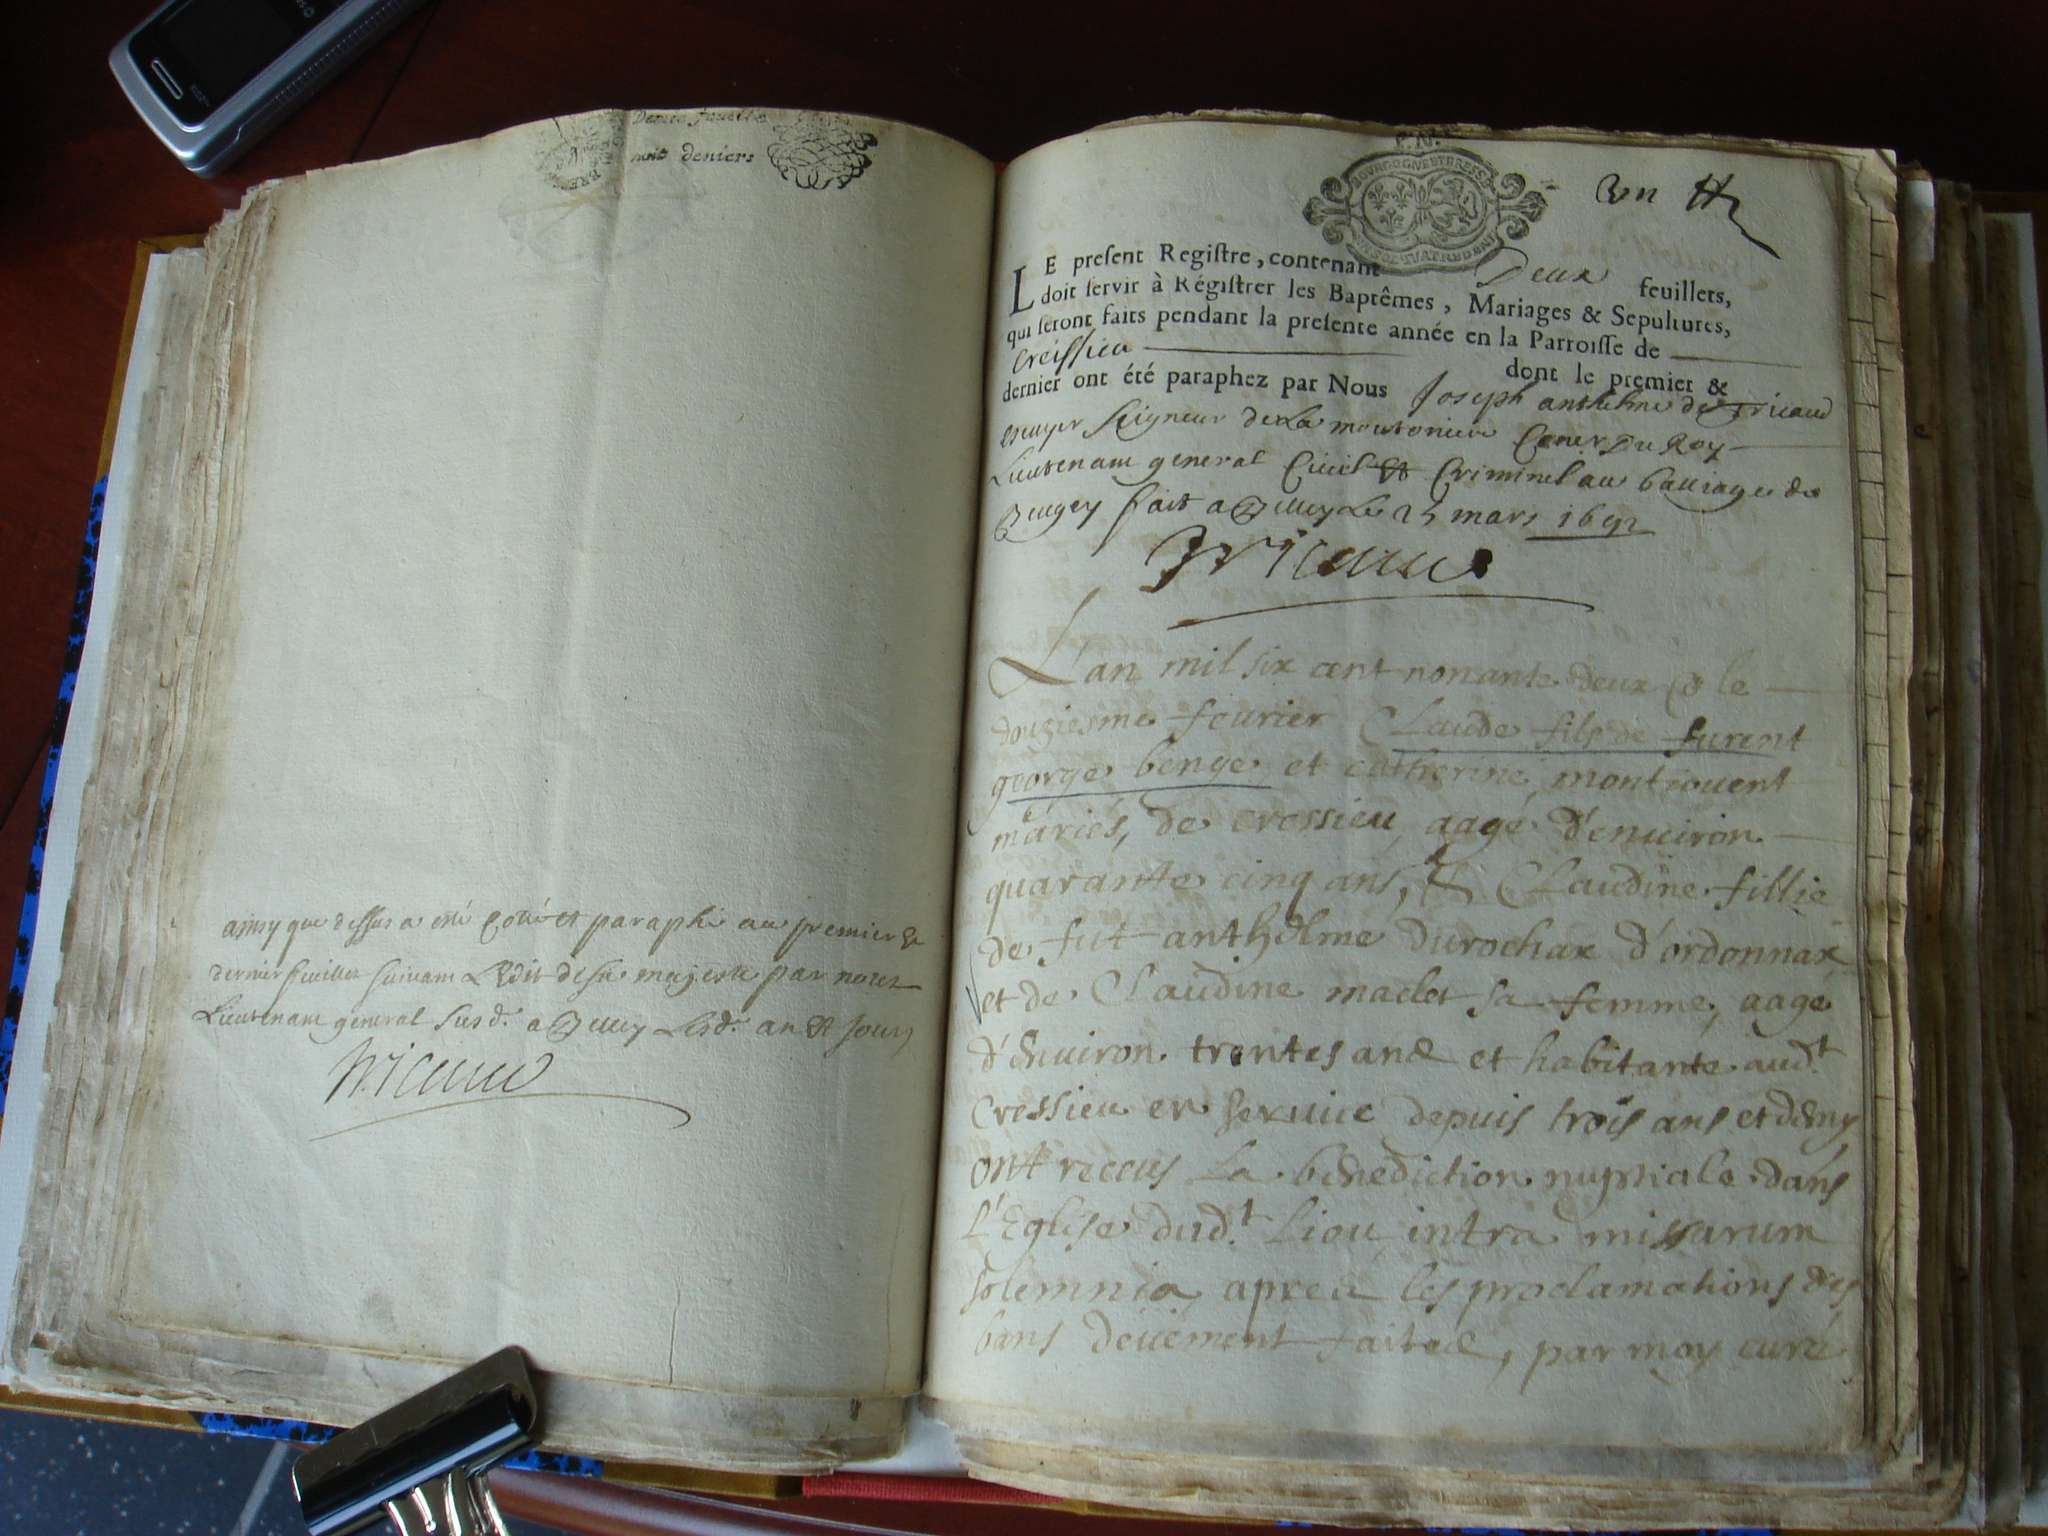 Demie feuille
huit deniers
ainsy que dessus a esté Cotté et paraphé au premier &
dernier feuillet suivant L'Edit de sa majesté par nous
Lieutenant general susd. a Belley Lesd. an & jour
Tricaud
BOURGOGNE ET BRESSE
Un
LE present Registre, contenant Deux feuillets,
doit servir à Régistrer les Baptêmes, Mariages & Sepultures,
qui seront faits pendant la presente année en la Parroisse de
Creissieu dont le premier &
dernier ont été paraphez par Nous Joseph anthelme de Tricaud
escuyer Seigneur de La moutonniere Coner Du Roy
Lieutenant general Civil & Criminel au bailiage de
Bugey fait a Belley Le 25 mars 1692
Tricaud
L'an mil six cent nonante deux & le
douziesme feurier Claude fils de furent
george benge et catherine montiouent
mariés, de cressieu, aagé d'enuiron
quarante cinq ans, & Claudine fillie
de fut anthelme durochax d'ordonnax
et de Claudine maclet sa femme, aagé
d'enuiron trentes ans et habitante aud.t
Cressieu en seruice depuis trois ans et demy
ont receus la benediction nuptiale dans
L'Eglise dud.t Liou intra missarum
solemnia apres les proclamations des
bans deüement faites, par moy curé